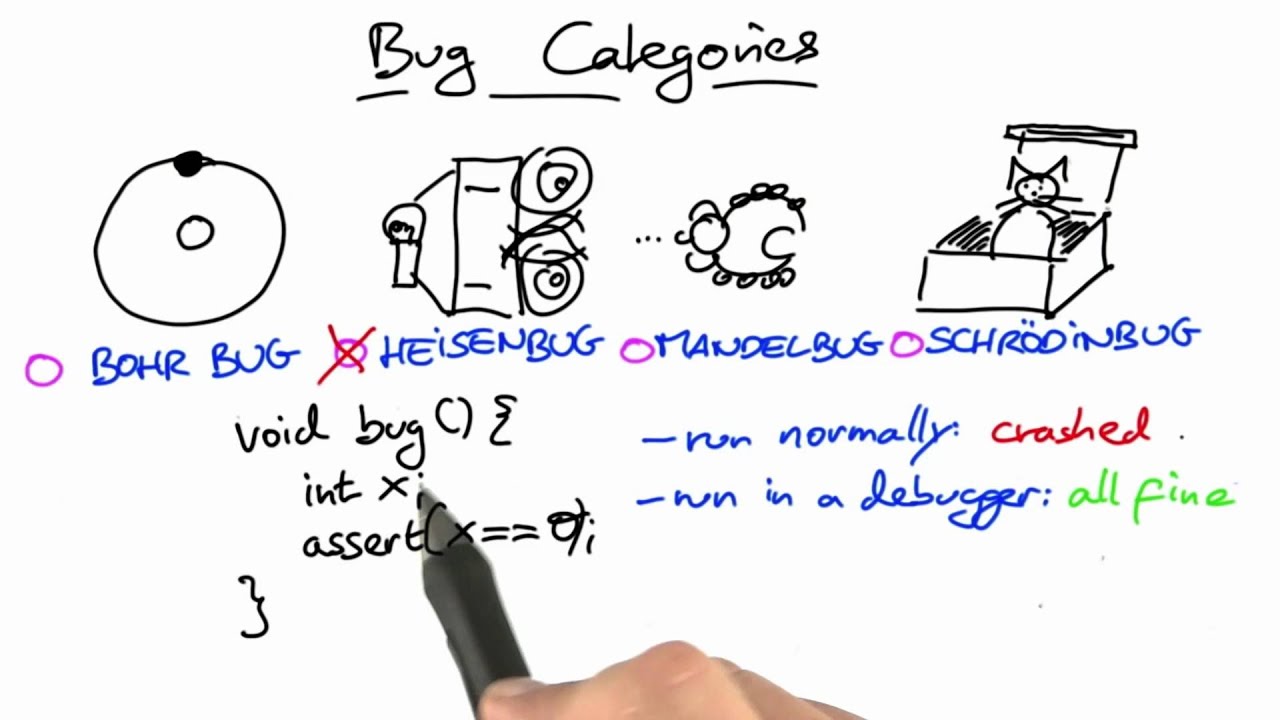 Bug Categories
BOHR BUG HEISENBUG MANDELBUG SCHRÖDINBUG
void bug() {
int x;
assert(x == 0);
}
- run normally: crashed
- run in a debugger: all fine